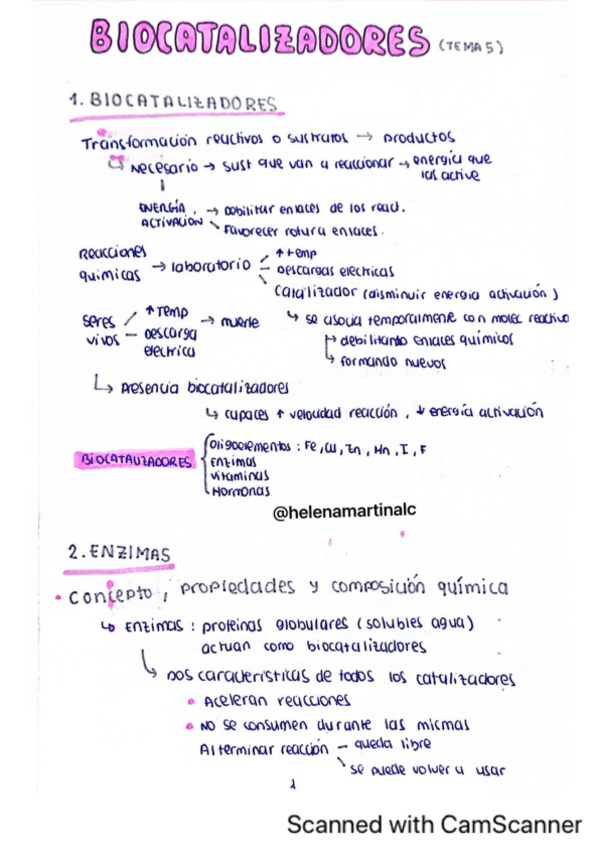 BIOCATALIZADORES (TEMA 5)
1. BIOCATALIZADORES
Transformación reactivos o sustratos → productos
↳ Necesario → sust que van a reaccionar → energía que
las active
ENERGÍA → Debilitar enlaces de los react.
ACTIVACIÓN ↘ Favorecer rotura enlaces.
Reacciones ↑ temp
químicas → laboratorio – Descargas eléctricas
Catalizador (disminuir energía activación)
seres ↑ Temp ↳ se asocia temporalmente con molec reactivo
vivos – Descarga → muerte ↳ debilitando enlaces químicos
eléctrica ↳ formando nuevos
↳ Presencia biocatalizadores
↳ capaces ↑ velocidad reacción, ↓ energía activación
Oligoelementos : Fe, Cu, Zn, Mn, I, F
BIOCATALIZADORES Enzimas
Vitaminas
Hormonas
@helenamartinalc
2. ENZIMAS
• Concepto, propiedades y composición química
↳ Enzimas : proteínas globulares (solubles agua)
actúan como biocatalizadores
↳ Dos características de todos los catalizadores
• Aceleran reacciones
• No se consumen durante las mismas
Al terminar reacción – queda libre
↘ se puede volver a usar
1
Scanned with CamScanner